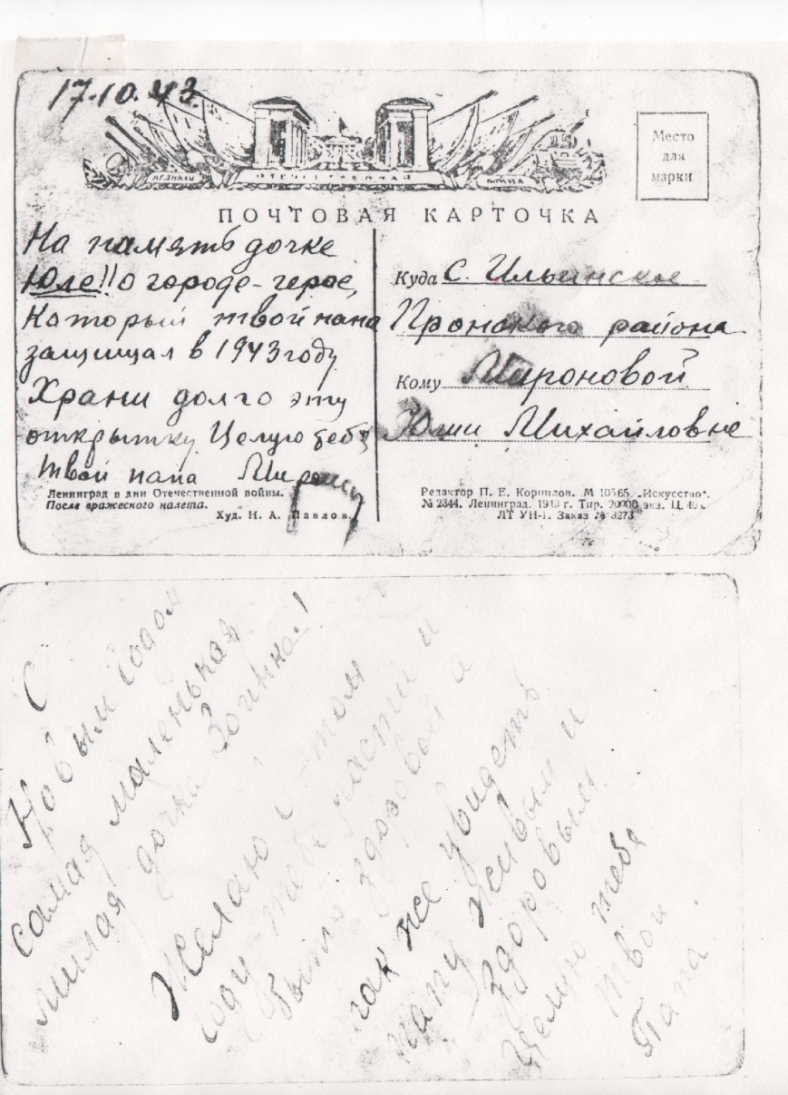 17.10.43.
ВЕЛИКАЯ ОТЕЧЕСТВЕННАЯ ВОЙНА
Место
для
марки
ПОЧТОВАЯ КАРТОЧКА
На память дочке
Юле!! о городе-герое,
Который твой папа
защищал в 1943 году
Храни долго эту
открытку. Целую тебя
твой папа
Ленинград в дни Отечественной войны.
После вражеского налета.
Худ. Н. А. Павлов.
Куда С. Ильинское
Пронского района
Кому Мироновой
Юлии Михайловне
Редактор П. Е. Корнилов. М 10565. „Искусство“.
№ 2344. Ленинград. 1943 г. Тир. 20000 экз. Ц.
ЛТ УН-1. Заказ № 3273
С
Новым годом
самая маленькая
милая дочка Зоинька!
Желаю в этом
году тебе расти и
быть здоровой а
так же увидеть
папу живым и
здоровым
Целую тебя
твой
Папа.